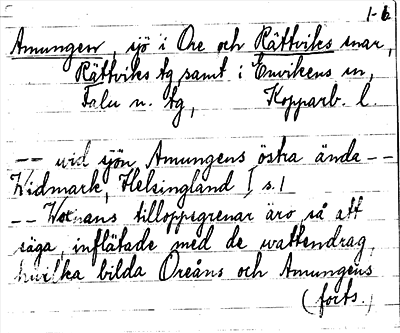 1-6
Amungen, sjö i Ore och Rättviks snar,
Rättviks tg samt i Envikens sn,
Falu n. tg, Kopparb. l.
-- vid sjön Amungens östra ända --
Widmark, Helsingland I, s. 1
-- Woxnans tilloppsgrenar äro så att
säga inflätade med de vattendrag,
hvilka bilda Oreåns och Amungens
(forts.)